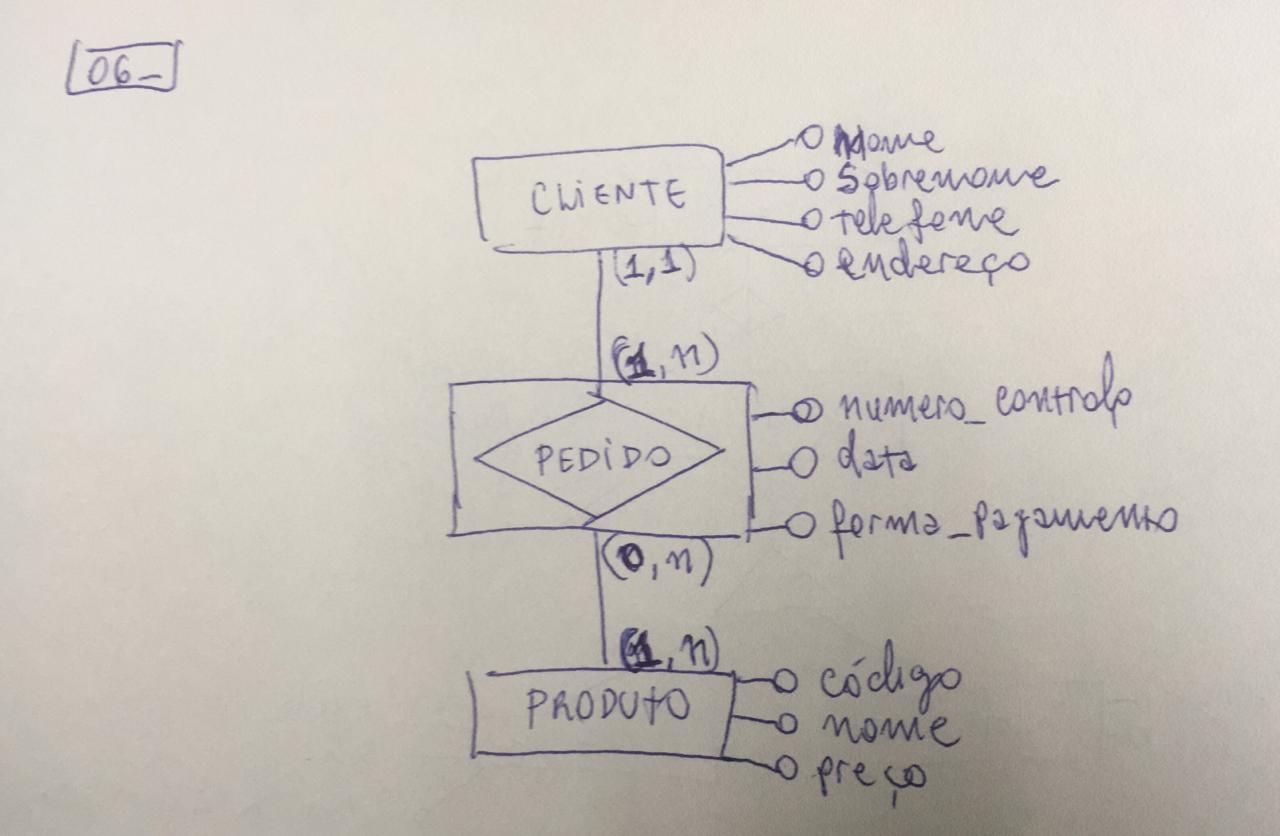 06_
CLIENTE
Nome
Sobrenome
telefone
endereço
(1,1)
(1,n)
PEDIDO
numero_controlo
data
forma_pagamento
(0,n)
(1,n)
PRODUTO
código
nome
preço